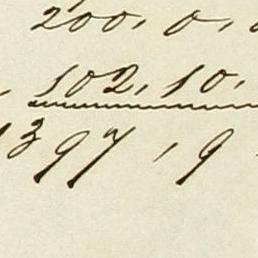 200, 0,
102, 10,
397, 9